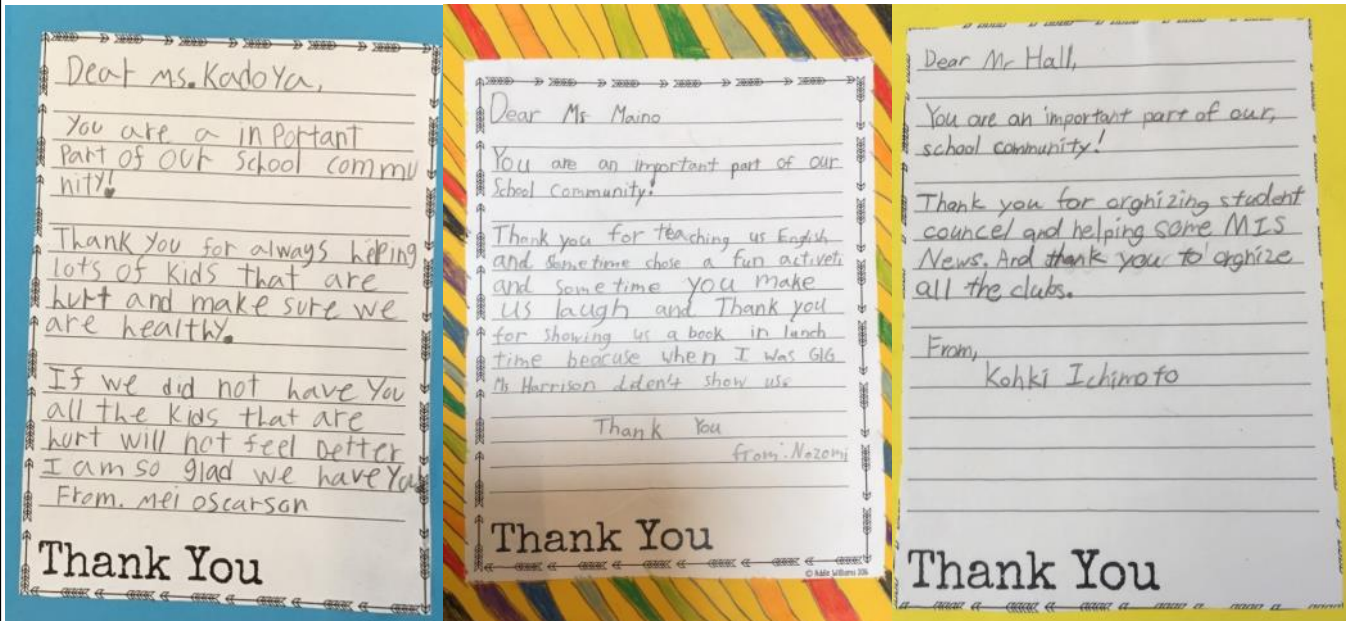 Dear Ms. Kadoya,
You are a inportant
Part of our School commu
nity!
Thank you for always helping
lots of kids that are
hurt and make sure we
are healthy.
If we did not have you
all the kids that are
hurt will not feel better
I am so glad we have you
From. Mei oscarson
Thank You
Dear Ms Maino
You are an important part of our
School Community!
Thank you for teaching us English
and sometime chose a fun activeti
and sometime you make
us laugh and Thank you
for showing us a book in lunch
time beacuse when I was G1G
Ms Harrison diden't show us.
Thank You
from. Nozomi
Thank You
© Addie Williams 2016
Dear Mr Hall,
You are an important part of our,
school community!
Thank you for orgnizing student
councel and helping some MIS
News. And thank you to orgnize
all the clubs.
From,
Kohki Ichimoto
Thank You